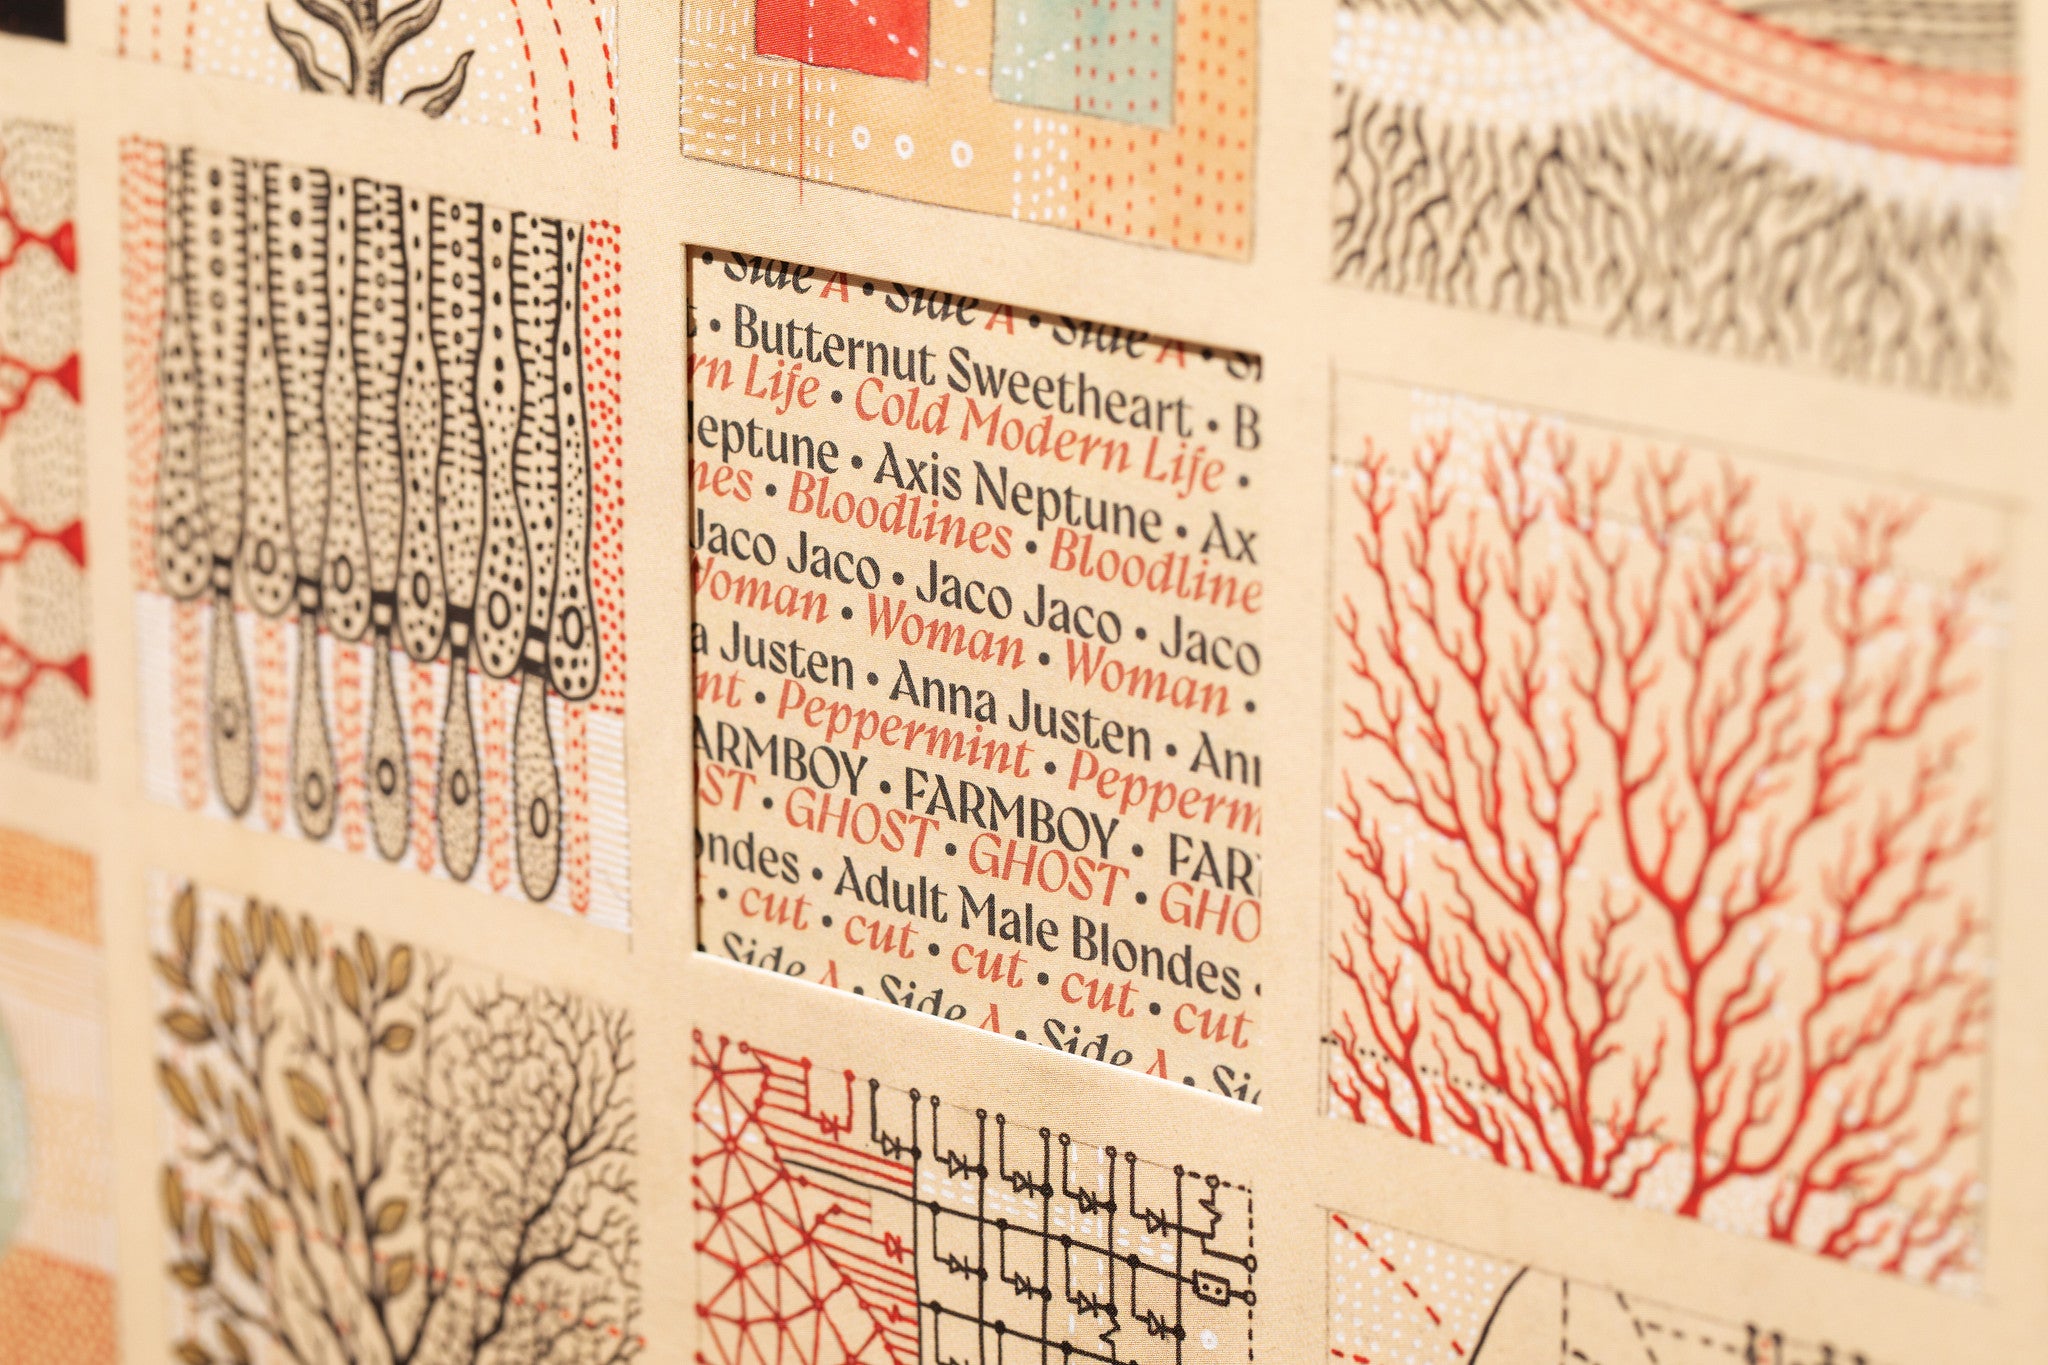 • Side A • Side A • Side A •
• Butternut Sweetheart • B
Life • Cold Modern Life •
eptune • Axis Neptune • Ax
nes • Bloodlines • Bloodline
Jaco Jaco • Jaco Jaco • Jaco
Woman • Woman • Woman •
a Justen • Anna Justen •
nt • Peppermint • Pepperm
ARMBOY • FARMBOY • FAR
ST • GHOST • GHOST • GHO
ondes • Adult Male Blondes •
• cut • cut • cut • cut • cut
• Side A • Side A • Side A •